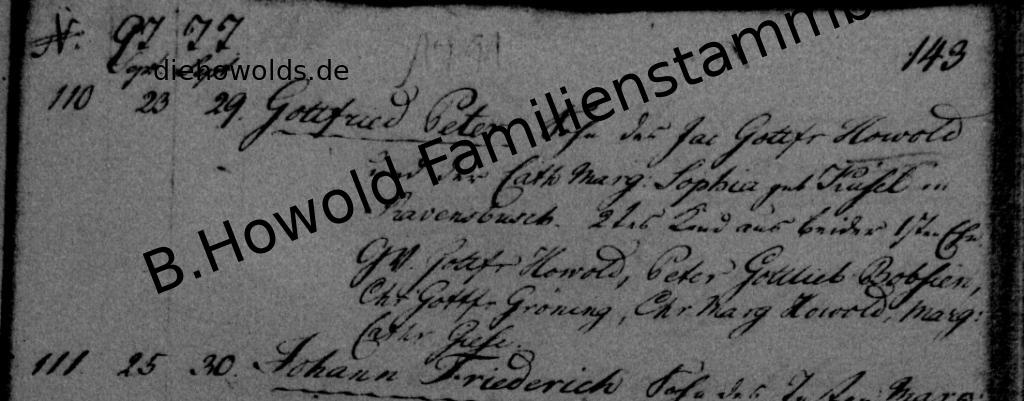 N. 97 77
143
diehowolds.de
B.Howold Familienstammb
110 23 29. Gottfried Peter Sohn des Jac Gottfr Howold
und der Cath Marg: Sophia geb in
Ravensbusch. 2tes Kind aus beider 1sten Ehe.
GV. Gottfr Howold, Peter Gottlieb Bobsien,
Chr Gottfr Gröning, Chr Marg Howold, Marg:
Cathr Giese.
111 25 30. Johann Friederich Sohn des